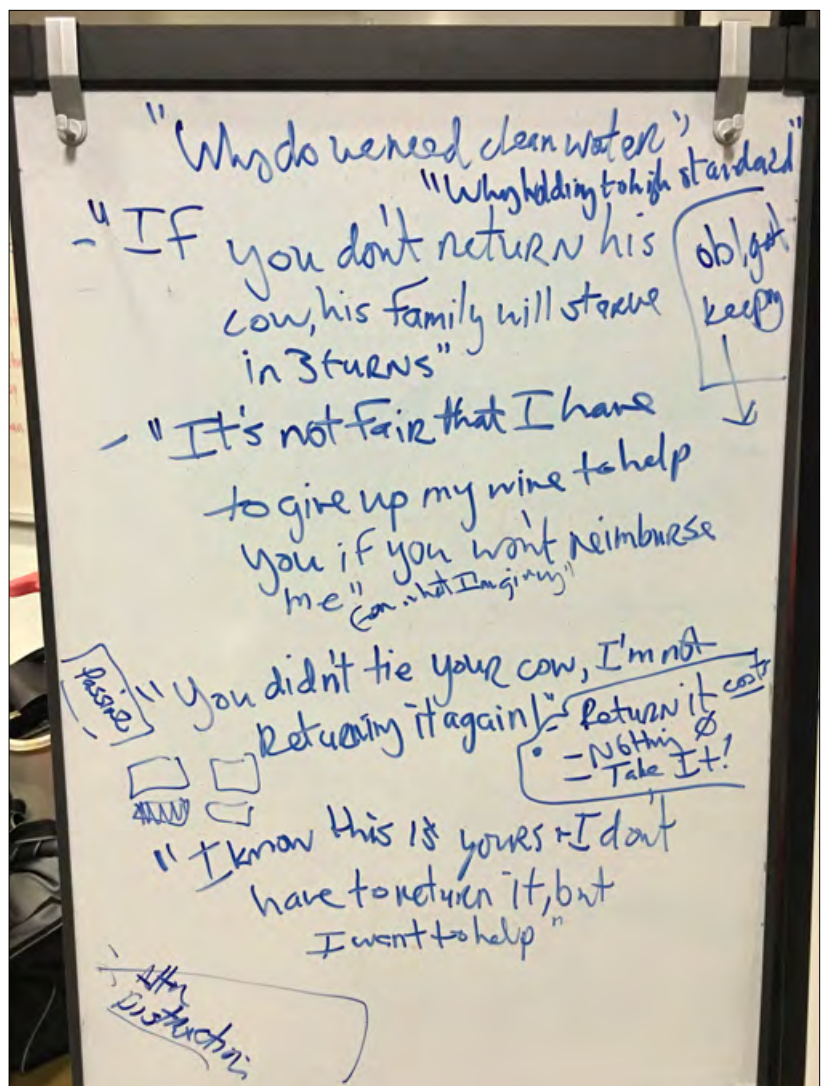 "Why do we need clean water"
"Why holding to high standard"
- "If you don't return his
cow, his family will starve
in 3 turns"
obligat
keeping
- "It's not fair that I have
to give up my wine to help
you if you won't reimburse
me"
Passive
"You didn't tie your cow, I'm not
Returning it again!"
- Return it costs
- Nothing Ø
- Take It!
"I know this is yours + I don't
have to return it, but
I want to help"
Attn
Distraction